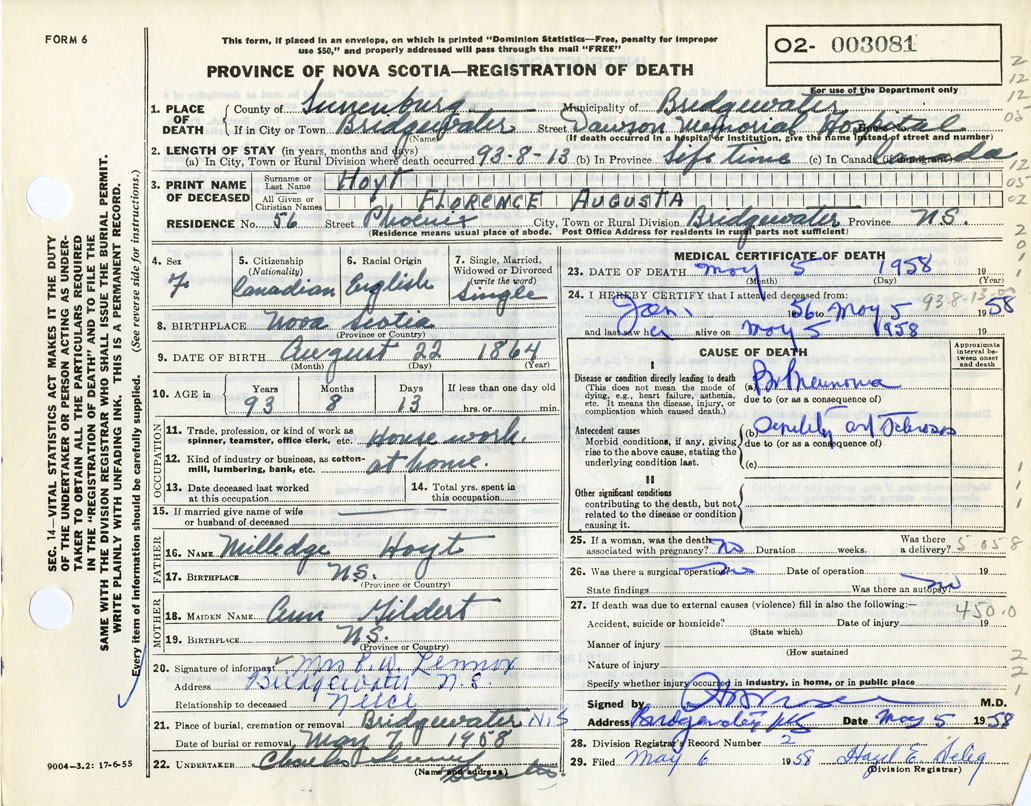 FORM 6
This form, if placed in an envelope, on which is printed "Dominion Statistics—Free, penalty for improper
use $50," and properly addressed will pass through the mail "FREE"
O2- 003081
For use of the Department only
PROVINCE OF NOVA SCOTIA—REGISTRATION OF DEATH
1. PLACE OF DEATH County of Lunenburg Municipality of Bridgewater
If in City or Town Bridgewater Street Dawson Memorial Hospital House No.
(Name) (If death occurred in a hospital or institution, give the name instead of street and number)
2. LENGTH OF STAY (in years, months and days)
(a) In City, Town or Rural Division where death occurred 93-8-13 (b) In Province Life time (c) In Canada (if immigrant) Canada
3. PRINT NAME OF DECEASED
Surname or Last Name Hoyt
All Given or Christian Names FLORENCE AUGUSTA
RESIDENCE No. 56 Street Phoenix City, Town or Rural Division Bridgewater Province N.S.
(Residence means usual place of abode. Post Office Address for residents in rural parts not sufficient)
4. Sex F
5. Citizenship (Nationality) Canadian
6. Racial Origin English
7. Single, Married, Widowed or Divorced (write the word) Single
8. BIRTHPLACE Nova Scotia
(Province or Country)
9. DATE OF BIRTH August 22 1864
(Month) (Day) (Year)
10. AGE in Years 93 Months 8 Days 13 If less than one day old hrs. or min.
OCCUPATION
11. Trade, profession, or kind of work as spinner, teamster, office clerk, etc. House work.
12. Kind of industry or business, as cotton-mill, lumbering, bank, etc. at home.
13. Date deceased last worked at this occupation
14. Total yrs. spent in this occupation
15. If married give name of wife or husband of deceased
FATHER
16. NAME Milledge Hoyt
17. BIRTHPLACE N.S.
(Province or Country)
MOTHER
18. MAIDEN NAME Ann Gildert
19. BIRTHPLACE N.S.
(Province or Country)
20. Signature of informant Mrs Lennox
Address Bridgewater N.S.
Relationship to deceased Neice
21. Place of burial, cremation or removal Bridgewater N.S
Date of burial or removal May 7 1958
22. UNDERTAKER Charles
(Name and address)
9004—3.2: 17-6-55
SEC. 14—VITAL STATISTICS ACT MAKES IT THE DUTY
OF THE UNDERTAKER OR PERSON ACTING AS UNDER-
TAKER TO OBTAIN ALL THE PARTICULARS REQUIRED
IN THE "REGISTRATION OF DEATH" AND TO FILE THE
SAME WITH THE DIVISION REGISTRAR WHO SHALL ISSUE THE BURIAL PERMIT.
WRITE PLAINLY WITH UNFADING INK. THIS IS A PERMANENT RECORD.
Every item of information should be carefully supplied. (See reverse side for instructions.)
MEDICAL CERTIFICATE OF DEATH
23. DATE OF DEATH May 5 1958 19
(Month) (Day) (Year)
93-8-13
24. I HEREBY CERTIFY that I attended deceased from:
Jan. 1956 to May 5 1958
and last saw her alive on May 5 1958 19
CAUSE OF DEATH
Approximate interval between onset and death
I
Disease or condition directly leading to death
(This does not mean the mode of dying, e.g., heart failure, asthenia, etc. It means the disease, injury, or complication which caused death.)
(a) Br Pneumonia
due to (or as a consequence of)
Antecedent causes
Morbid conditions, if any, giving rise to the above cause, stating the underlying condition last.
(b) Senility
due to (or as a consequence of)
(c)
II
Other significant conditions
contributing to the death, but not related to the disease or condition causing it.
25. If a woman, was the death associated with pregnancy? No Duration weeks. Was there a delivery?
5 058
26. Was there a surgical operation? no Date of operation 19
State findings Was there an autopsy? no
27. If death was due to external causes (violence) fill in also the following:—
450.0
Accident, suicide or homicide? Date of injury 19
(State which)
Manner of injury
(How sustained
Nature of injury
Specify whether injury occurred in industry, in home, or in public place
Signed by M.D.
Address Bridgewater, NS Date May 5 1958
28. Division Registrar's Record Number 2
29. Filed May 6 1958 Hazel E
(Division Registrar)